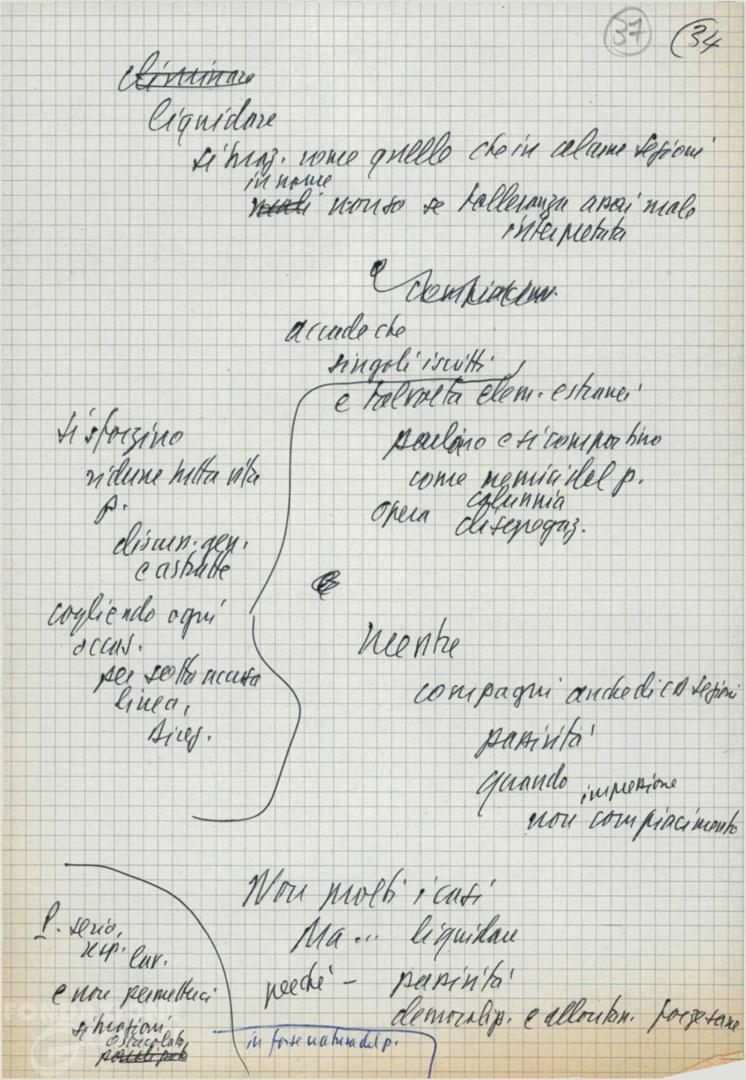 37 (34
eliminare
liquidare
situaz. come quelle che in alcune sezioni
in nome
non so se tolleranza assai male
interpretata
accade che
singoli iscritti
e talvolta elem. estranei
parlino e si comportino
come nemici del p.
opera calunnia
disgregaz.
si sforzino
ridurre tutta vita
p.
discuss. gen.
e astratte
cogliendo ogni
occas.
per sotto accusa
linea,
direz.
mentre
compagni anche di CD sezioni
passività
quando impressione
non compiacimento
Non molti i casi
Ma... liquidare
perché – passività
demoralizz. e allontan. forze sane
P. serio,
risp. lav.
e non permetterci
situazioni
in forse natura del p.